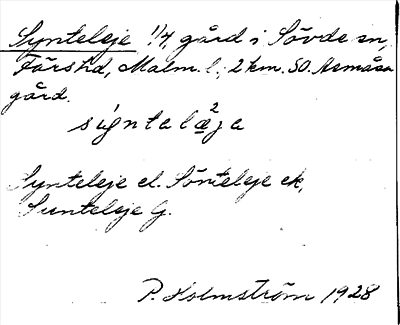 Synteleje 1/4, gård i Sövde sn,
Färs hd, Malm. l., 2 km. SO. Assmåsa
gård.
Synteleje el. Sönteleje ek,
Sunteleje G.
P. Holmström 1928